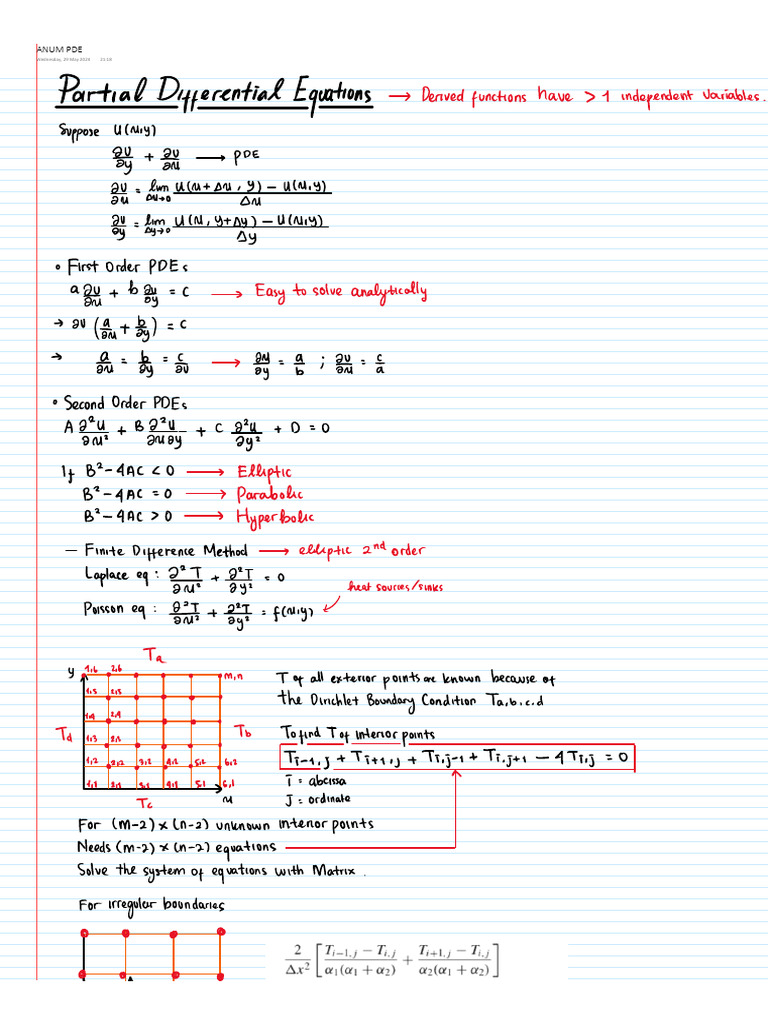 ANUM PDE
Wednesday, 29 May 2024 21:18
Partial Differential Equations → Derived functions have > 1 independent variables.
Suppose U(x,y)
∂U/∂y + ∂U/∂x → PDE
∂U/∂x = lim Δx→0 U(x+Δx, y) − U(x,y) / Δx
∂U/∂y = lim Δy→0 U(x, y+Δy) − U(x,y) / Δy
• First Order PDEs
a ∂U/∂x + b ∂U/∂y = C → Easy to solve analytically
→ ∂U (a/∂x + b/∂y) = C
→ a/∂x = b/∂y = c/∂U → ∂x/∂y = a/b ; ∂U/∂x = c/a
• Second Order PDEs
A ∂²U/∂x² + B ∂²U/∂x∂y + C ∂²U/∂y² + D = 0
If B²−4AC < 0 → Elliptic
B²−4AC = 0 → Parabolic
B²−4AC > 0 → Hyperbolic
— Finite Difference Method → elliptic 2nd order
Laplace eq : ∂²T/∂x² + ∂²T/∂y² = 0
heat sources/sinks
Poisson eq : ∂²T/∂x² + ∂²T/∂y² = f(x,y)
Ta
y 1,6 2,6 m,n
1,5 2,5
1,4 2,4
Td 1,3 Tb
1,2 2,2 3,2 4,2 5,2 6,2
1,1 2,1 3,1 4,1 5,1 6,1
Tc x
T of all exterior points are known because of
the Dirichlet Boundary Condition Ta,b,c,d
To find T of interior points
Ti−1,j + Ti+1,j + Ti,j−1 + Ti,j+1 − 4Ti,j = 0
i = abcissa
J = ordinate
For (m−2)×(n−2) unknown interior points
Needs (m−2)×(n−2) equations
Solve the system of equations with Matrix.
For irregular boundaries
2/Δx² [ Ti−1,j − Ti,j / α1(α1 + α2) + Ti+1,j − Ti,j / α2(α1 + α2) ]